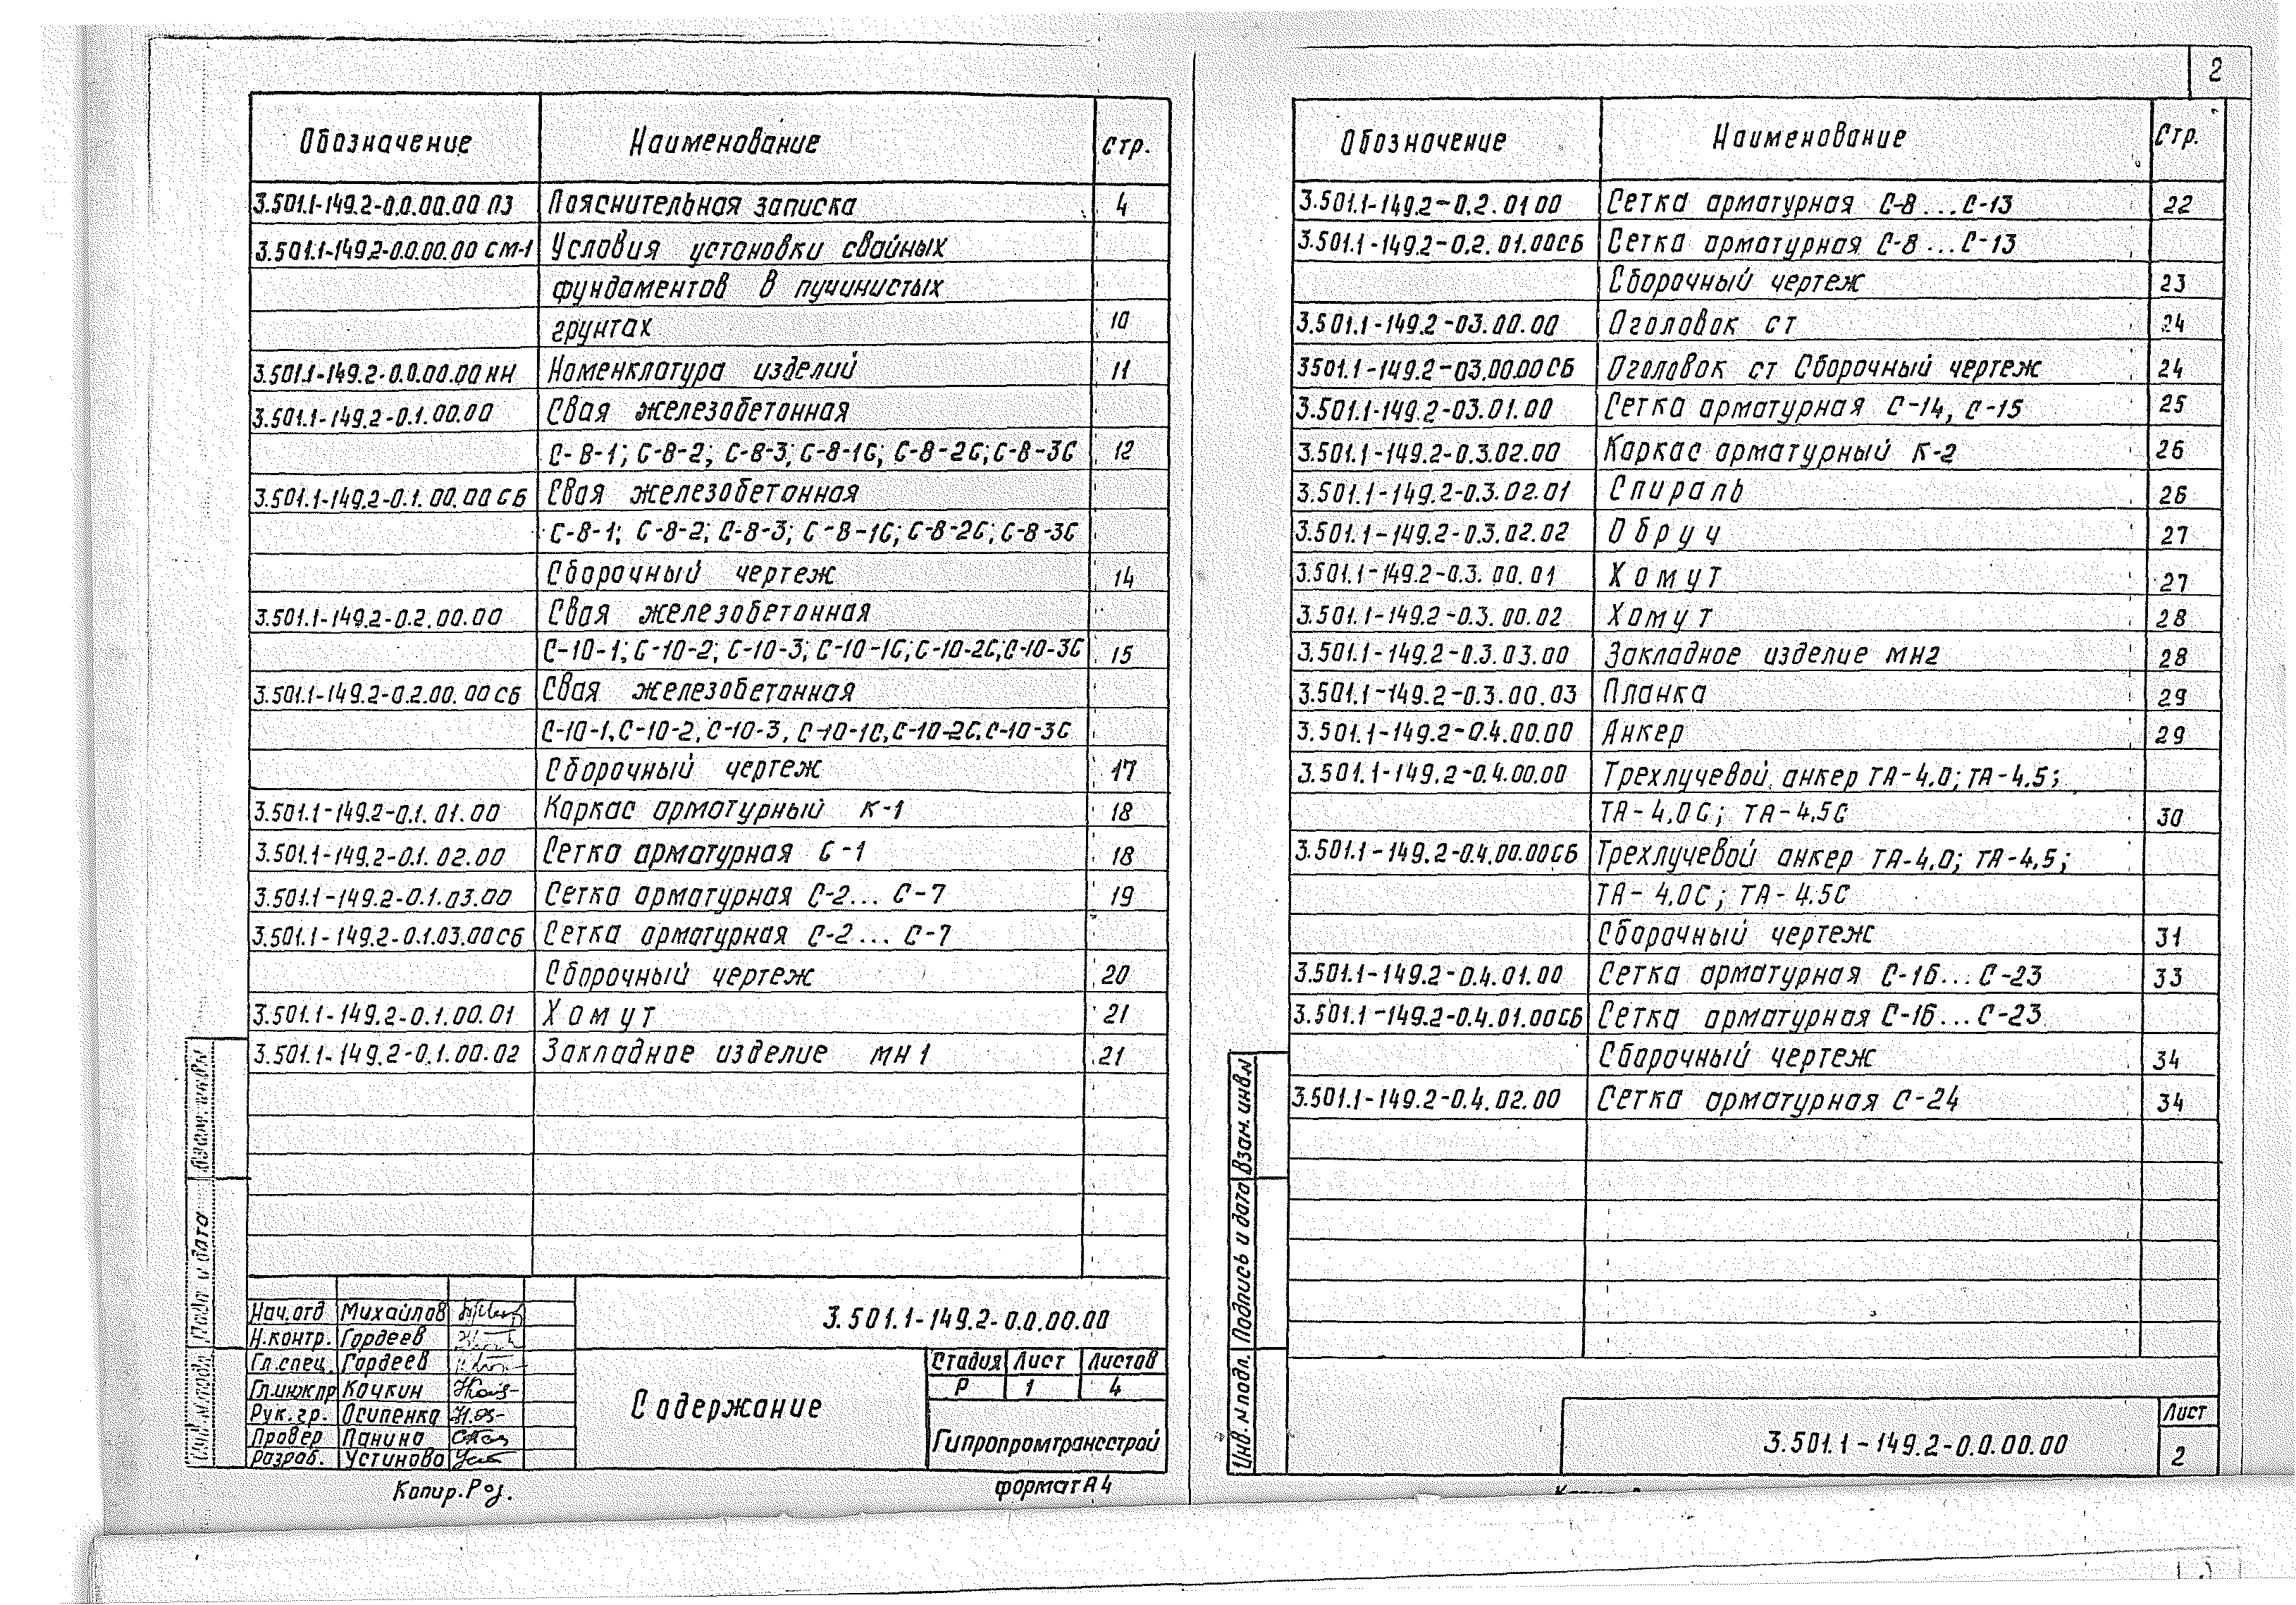 2
Обозначение Наименование стр.
3.501.1-149.2-0.0.00.00 ПЗ Пояснительная записка 4
3.501.1-149.2-0.0.00.00 СМ-1 Условия установки свайных
фундаментов в пучинистых
грунтах 10
3.501.1-149.2-0.0.00.00 НН Номенклатура изделий 11
3.501.1-149.2-0.1.00.00 Свая железобетонная
С-8-1; С-8-2; С-8-3; С-8-1С; С-8-2С; С-8-3С 12
3.501.1-149.2-0.1.00.00 СБ Свая железобетонная
С-8-1; С-8-2; С-8-3; С-8-1С; С-8-2С; С-8-3С
Сборочный чертеж 14
3.501.1-149.2-0.2.00.00 Свая железобетонная
С-10-1; С-10-2; С-10-3; С-10-1С; С-10-2С, С-10-3С 15
3.501.1-149.2-0.2.00.00 СБ Свая железобетонная
С-10-1, С-10-2, С-10-3, С-10-1С, С-10-2С, С-10-3С
Сборочный чертеж 17
3.501.1-149.2-0.1.01.00 Каркас арматурный К-1 18
3.501.1-149.2-0.1.02.00 Сетка арматурная С-1 18
3.501.1-149.2-0.1.03.00 Сетка арматурная С-2...С-7 19
3.501.1-149.2-0.1.03.00СБ Сетка арматурная С-2...С-7
Сборочный чертеж 20
3.501.1-149.2-0.1.00.01 Хомут 21
3.501.1-149.2-0.1.00.02 Закладное изделие МН1 21
Взам. инв.N
Подп. и дата
Нач.отд Михайлов
Н.контр. Гордеев
Гл.спец. Гордеев
Гл.инж.пр Кочкин
Рук.гр. Осипенко
Провер Панина
Разраб. Устинова
3.501.1-149.2-0.0.00.00
Содержание
Стадия Лист Листов
Р 1 4
Гипропромтрансстрой
Копир.
формат А4
Обозначение Наименование Стр.
3.501.1-149.2-0.2.01 00 Сетка арматурная С-8...С-13 22
3.501.1-149.2-0.2.01.00СБ Сетка арматурная С-8...С-13
Сборочный чертеж 23
3.501.1-149.2-03.00.00 Оголовок ст 24
3501.1-149.2-03.00.00СБ Оголовок ст Сборочный чертеж 24
3.501.1-149.2-03.01.00 Сетка арматурная С-14, С-15 25
3.501.1-149.2-0.3.02.00 Каркас арматурный К-2 26
3.501.1-149.2-0.3.02.01 Спираль 26
3.501.1-149.2-0.3.02.02 Обруч 27
3.501.1-149.2-0.3.00.01 Хомут 27
3.501.1-149.2-0.3.00.02 Хомут 28
3.501.1-149.2-0.3.03.00 Закладное изделие МН2 28
3.501.1-149.2-0.3.00.03 Планка 29
3.501.1-149.2-0.4.00.00 Анкер 29
3.501.1-149.2-0.4.00.00 Трехлучевой анкер ТА-4.0; ТА-4.5;
ТА-4.0С; ТА-4.5С 30
3.501.1-149.2-0.4.00.00СБ Трехлучевой анкер ТА-4.0; ТА-4.5;
ТА-4.0С; ТА-4.5С
Сборочный чертеж 31
3.501.1-149.2-0.4.01.00 Сетка арматурная С-16...С-23 33
3.501.1-149.2-0.4.01.00СБ Сетка арматурная С-16...С-23
Сборочный чертеж 34
3.501.1-149.2-0.4.02.00 Сетка арматурная С-24 34
Взам. инв.N
Подпись и дата
Инв. N подл.
3.501.1-149.2-0.0.00.00
Лист
2